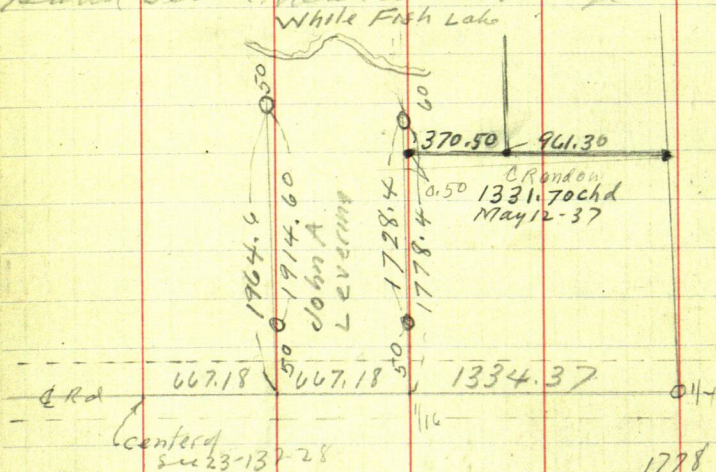 White Fish Lake
50
60
370.50 961.30
C Randon
0.50 1331.70 chd
May 12-37
1964.6
1914.60
John A
Levering
1728.4
1778.4
50
50
667.18 667.18 1334.37
℄ Rd
1/16
1/4
center of
Sec 23-137-28
1778